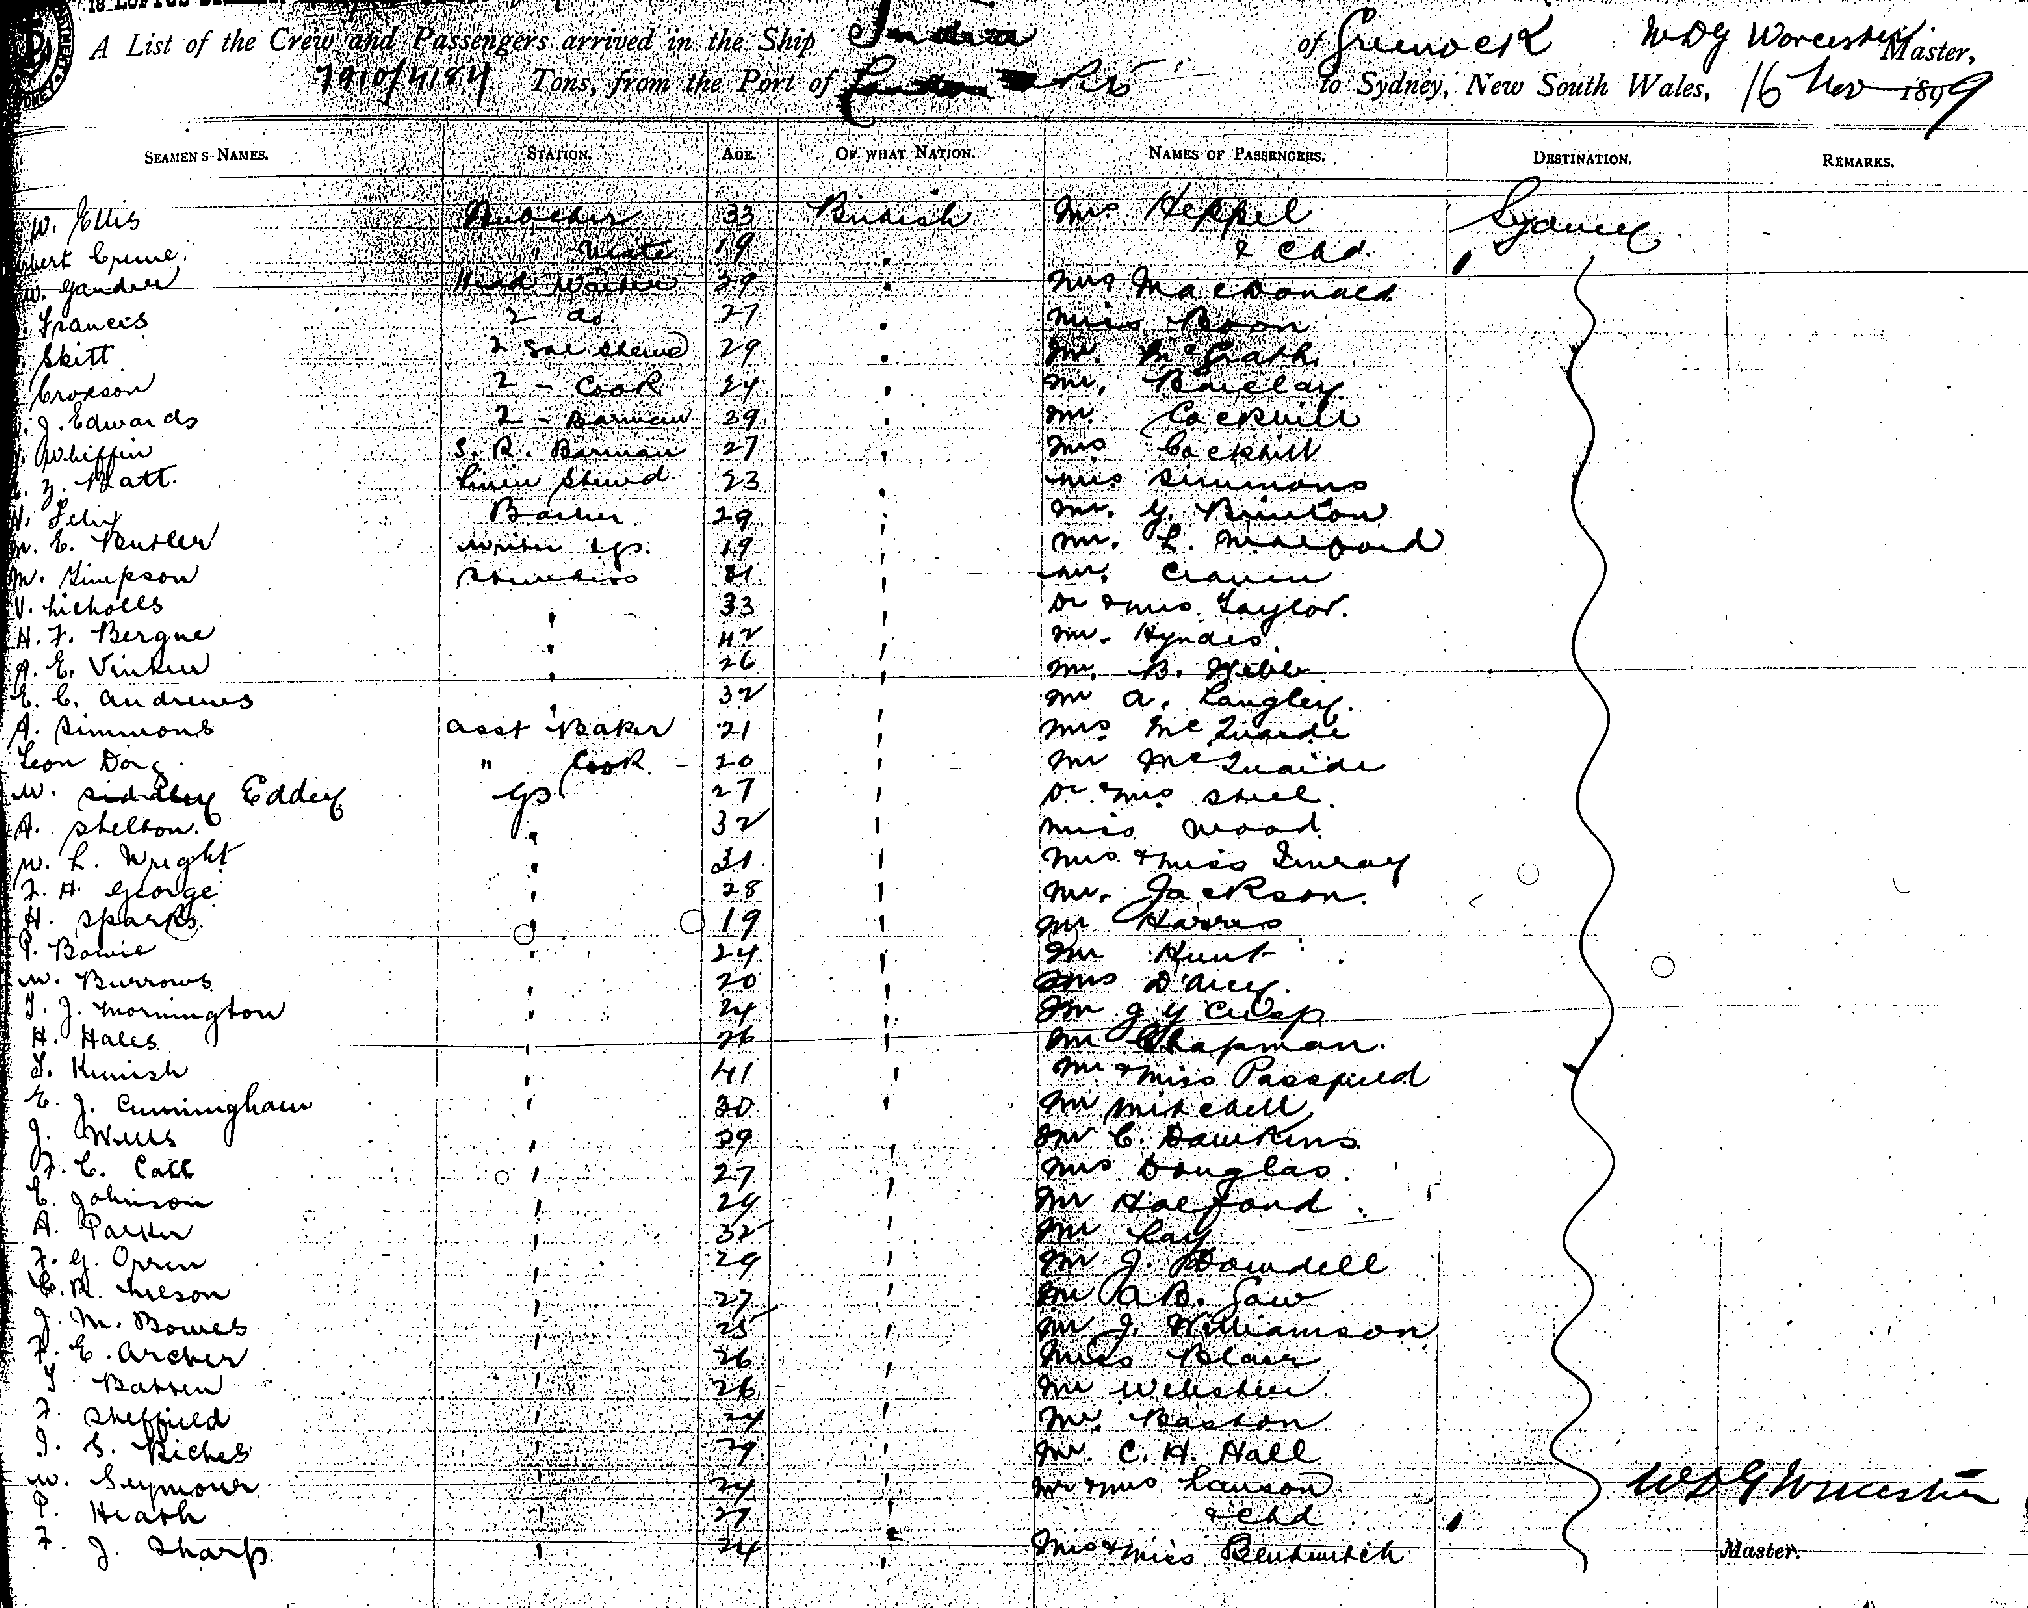 A List of the Crew and Passengers arrived in the Ship India of Greenock WDG Worcester Master,
7910/4184 Tons, from the Port of London to Sydney, New South Wales, 16 Nov 1899
SEAMEN'S NAMES. STATION. AGE. OF WHAT NATION. NAMES OF PASSENGERS. DESTINATION. REMARKS.
W. Ellis Butcher 33 British Mrs Heppel Sydney
" Mate 19 " & Chd. "
W. Gander Head Waiter 39 " Mrs MacDonald
Francis 2 do 27 " Miss Boon
Skitt 2 Sal Stewd 29 " Mr. McGrath
Croxson 2 - Cook 24 " Mr. Barclay
J. Edwards 2 - Barman 39 " Mr. Cockhill
Whiffin S. R. Barman 27 " Mrs Cockhill
Platt. Linen Stewd 23 " Mrs Simmons
Barber 29 " Mr. G. Brinton
E. Butler Writer &c. 19 " Mr. L.
M. Simpson Stewardess 31 " Mr. Craven
V. Nicholls " 33 " Dr & Mrs. Taylor.
H. F. Bergne " 42 " Mr. Hyndes
A. E. " 26 " Mr. B. Webb
E. C. Andrews " 32 " Mr A. Langley.
A. Simmons Asst Baker 21 " Mrs McQuaide
Leon " Cook 20 " Mr McQuaide
W. Siddley Eddey GS 27 " Dr Mrs Steel.
A. Skelton. " 32 " Miss Wood
W. L. Wright " 31 " Mrs & Miss
F. H. George " 28 " Mr. Jackson.
H. Sparks. " 19 " Mr Harris
P. Bowie " 24 " Mr Hunt
W. Burrows " 20 " Mrs D'Arcy.
T. J. Mornington " 24 " Mr G Y Crisp
H. Hales " 26 " Mr Chapman.
T. Kinish " 41 " Mr & Miss Passfield
E. J. Cunningham " 30 " Mr Mitchell
J. Wells " 39 " Mr C. Dawkins
F. C. Catt " 27 " Mrs Douglas.
E. Johnson " 29 " Mr Halford.
A. Parker " 32 " Mr Lay
F. G. Orrin " 29 " Mr J. Dowdell
C. R. Nelson " 27 " Mr A B. Gaw
J. M. Bowes " 25 " Mr J. Williamson
F. E. Archer " 26 " Miss Blair
T Batten " 26 " Mr Webster
F. Sheffield " 24 " Mr. Baston
J. S. Riches " 29 " Mr. C. H. Hall
W. Seymour " 24 " Mr & Mrs Lawson WDG Worcester
P. Heath " 27 " & Chd "
F. J. Sharp " 24 " Mrs & Miss Bentwitch Master.